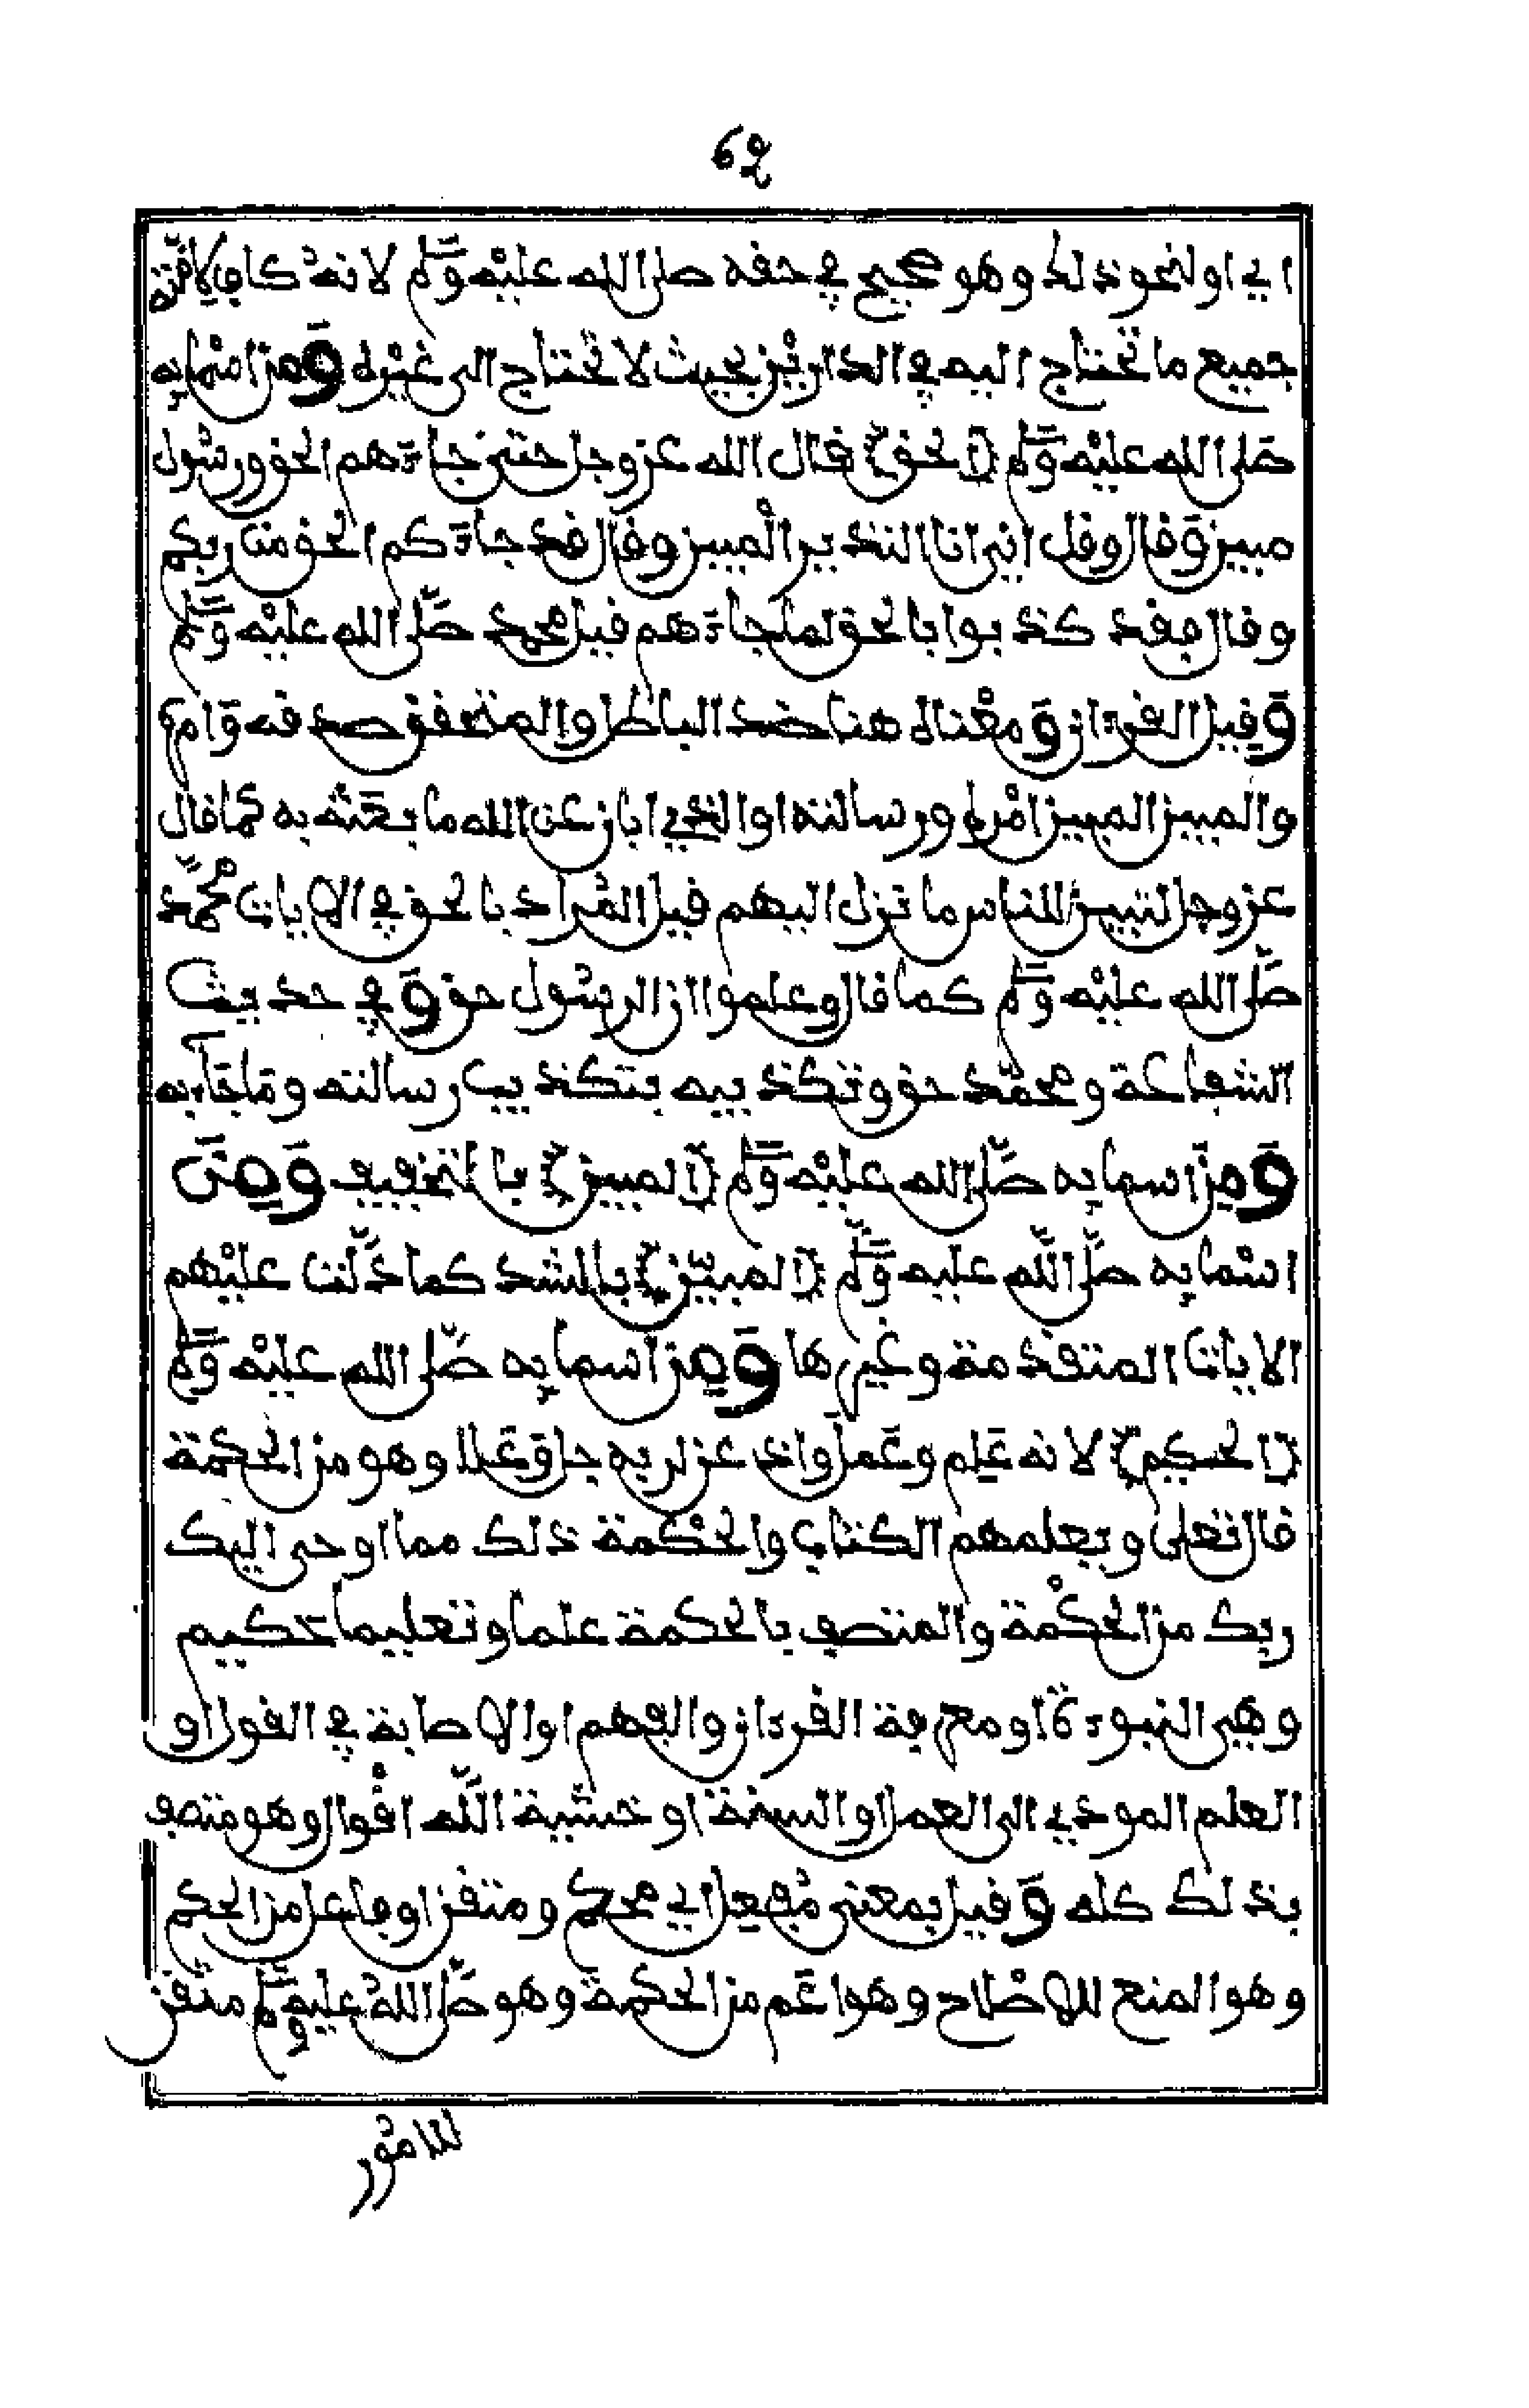 62
اي او لنحو ذلك وهو صحيح في حقه صلى الله عليه وسلم لانه كاف لامته
جميع ما تحتاج اليه في الدارين بحيث لا تحتاج الى غيره ومن اسمايه
صلى الله عليه وسلم (الحق) قال الله عز وجل حتى جاءهم الحق ورسول
مبين وقال وقل اني انا النذير المبين وقال قد جاءكم الحق من ربكم
وقال فقد كذبوا بالحق لما جاءهم قيل محمد صلى الله عليه وسلم
وقيل القرءان ومعناه هنا ضد الباطل والمتحقق صدقه وامره
والمبين المبين امره ورسالته او الذي ابان عن الله ما بعثه به كما قال
عز وجل لتبين للناس ما نزل اليهم قيل المراد بالحق في الايات محمد
صلى الله عليه وسلم كما قال وعلموا ان الرسول حق وفي حديث
الشفاعة ومحمد حق وتكذيبه بتكذيب رسالته وما جاء به
ومن اسمايه صلى الله عليه وسلم (المبين) بالتخفيف ومن
اسمايه صلى الله عليه وسلم (المبيّن) بالشد كما دلت عليهم
الايات المتقدمة وغيرها ومن اسمايه صلى الله عليه وسلم
(الحكيم) لانه علم وعمل واذعن لربه جل وعلا وهو من الحكمة
قال تعلى ويعلمهم الكتاب والحكمة ذلك مما اوحى اليك
ربك من الحكمة والمتصف بالحكمة علما وتعليما حكيم
وهي النبوءة او معرفة القرءان والفهم او الاصابة في القول او
العلم المودي الى العمل او السنة او خشية الله اقوال وهو متصف
بذلك كله وقيل بمعنى مفعل اي محكم ومتقن او فاعل من الحكم
وهو المنع للاصلاح وهو اعم من الحكمة وهو صلى الله عليه وسلم متقن
للامور